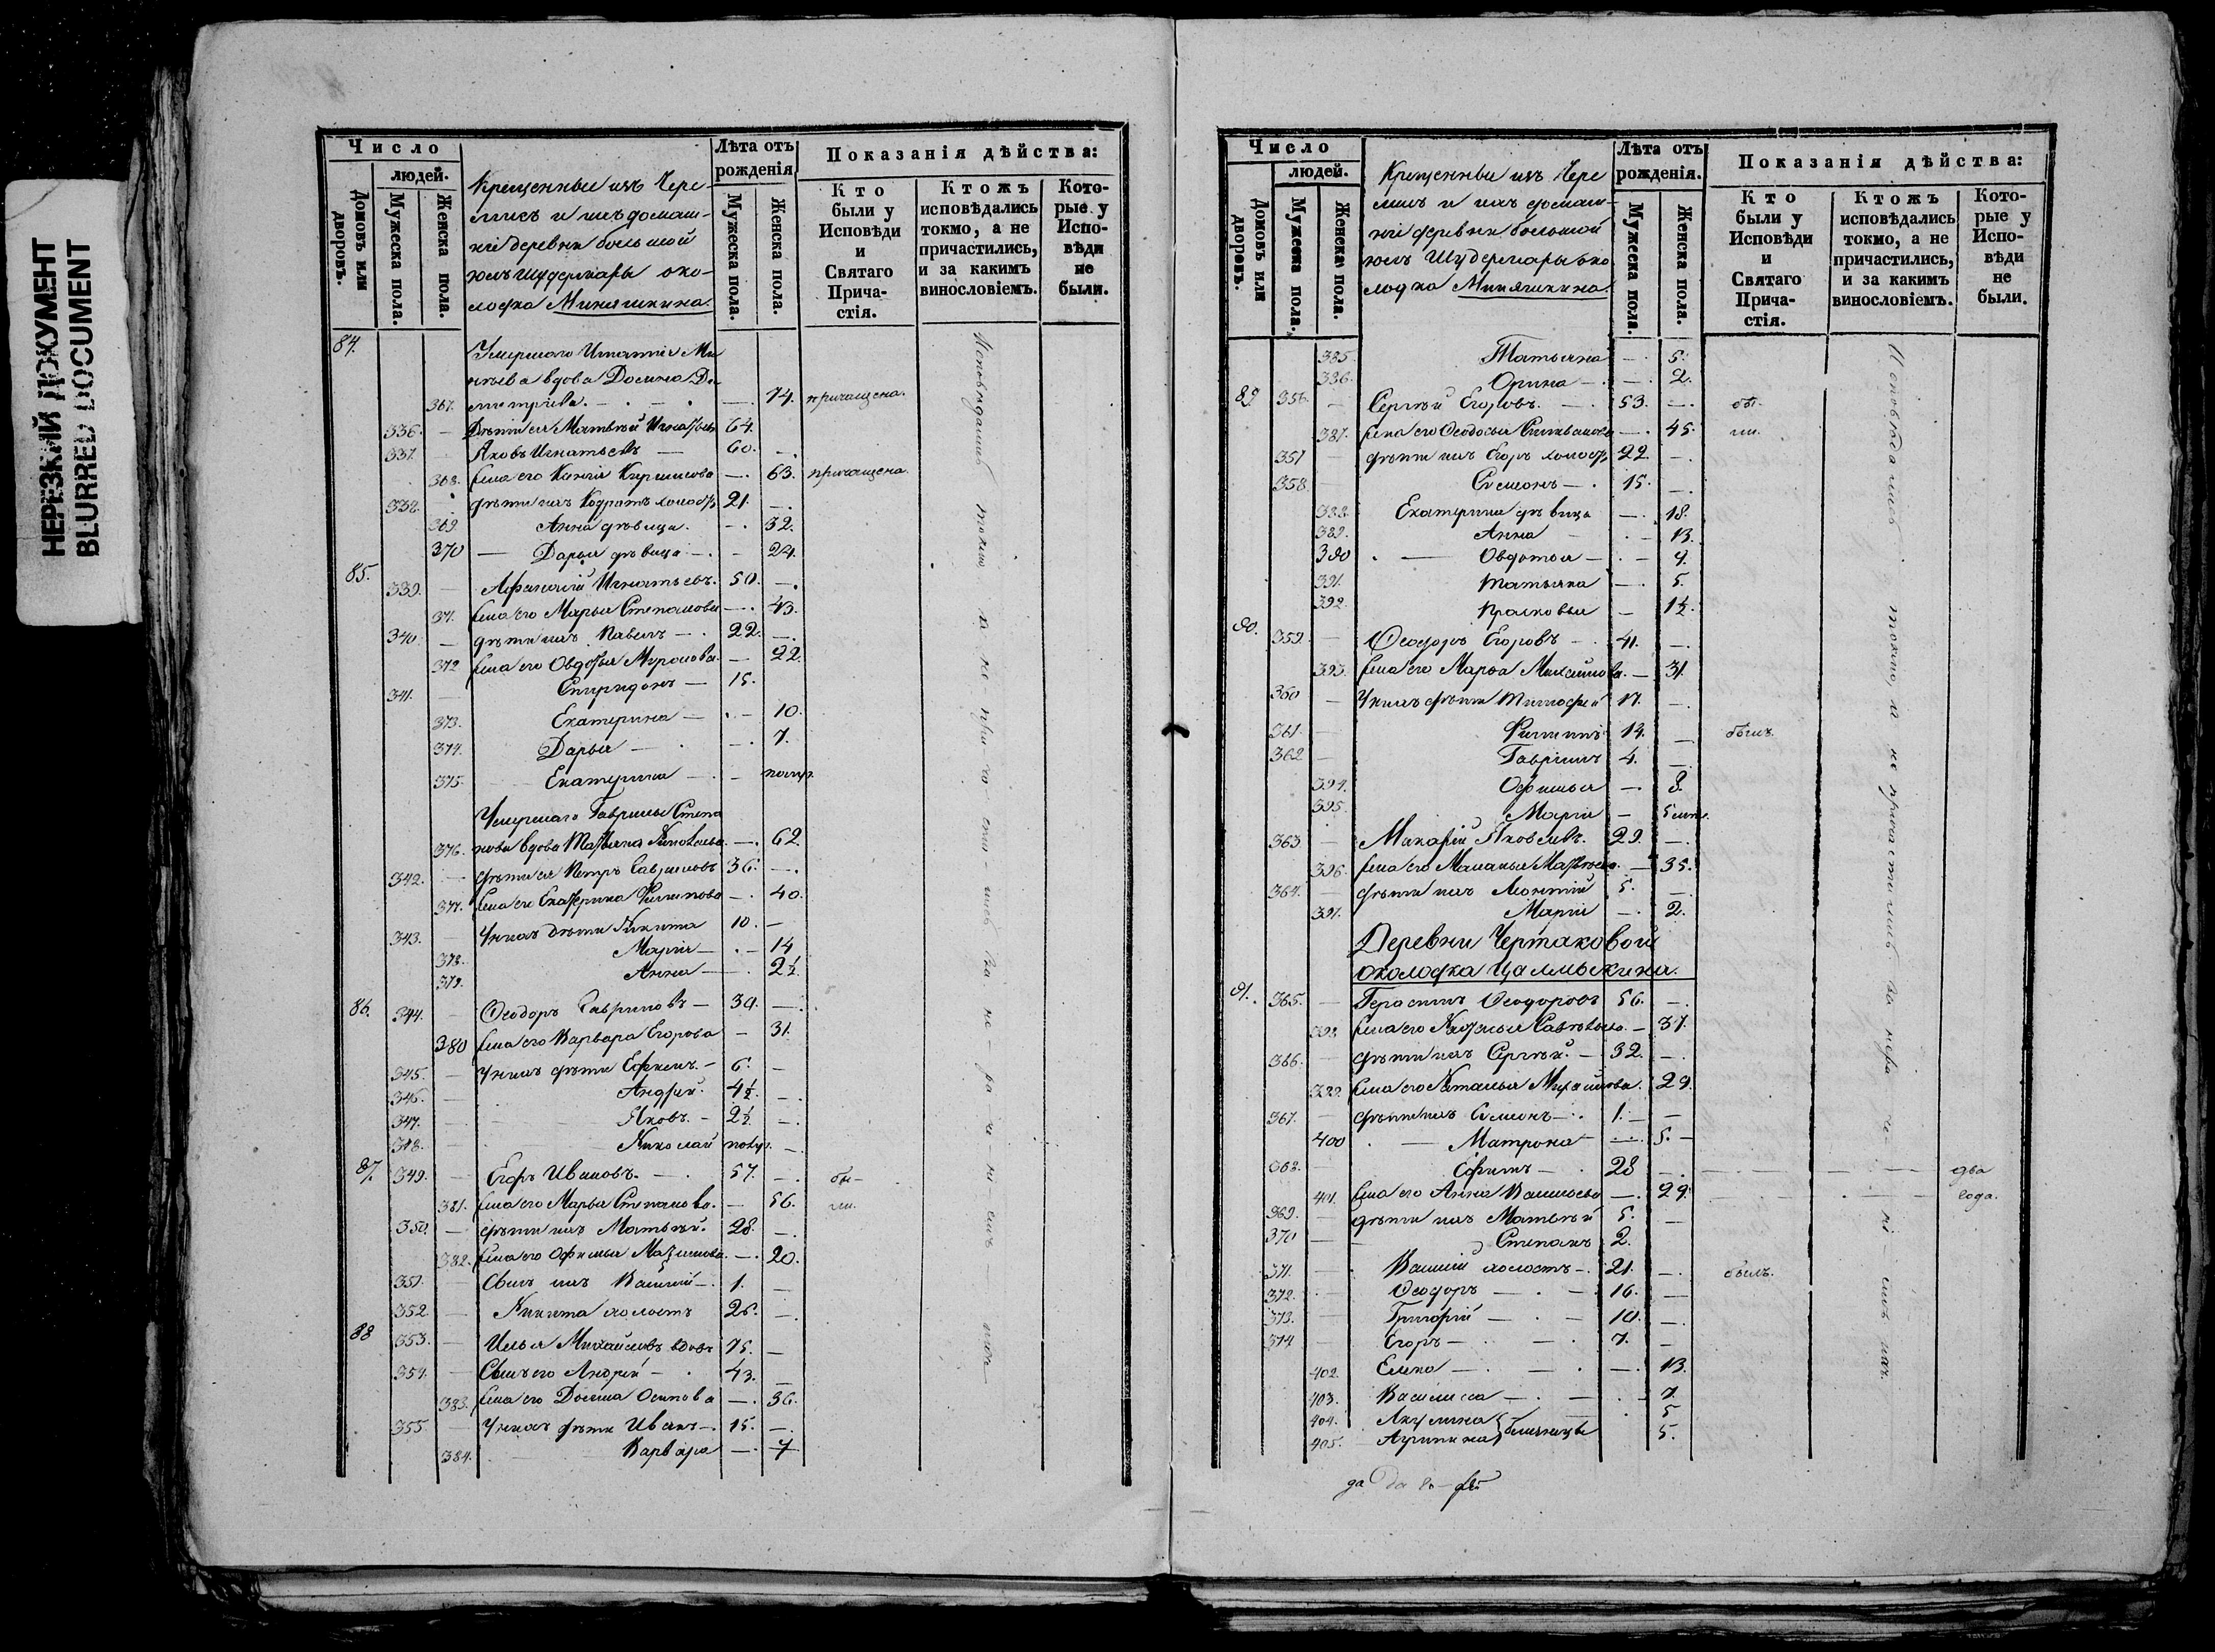 НЕРЕЗКИЙ ДОКУМЕНТ
BLURRED DOCUMENT
Число
людей.
Домовъ или дворовъ.
Мужеска пола.
Женска пола.
Крещенные изъ Чере-
мисъ и ихъ домаш-
ніе деревни большой
околодка Миняшкина.
Лѣта отъ рожденія
Мужеска пола.
Женска пола.
Показанія дѣйства:
Кто были у Исповѣди и Святаго Прича-стія.
Ктожъ исповѣдались токмо, а не причастились, и за какимъ винословіемъ.
Кото-рые у Испо-вѣди не были.
84. Умершаго Игнатія Ми-
вдова Домна Ди-
367. митріева. — 74. причащена.
336. — Дѣти ея Матвѣй Игнатьевъ 64.
337. — Яковъ Игнатьевъ — 60. —
368. Жена его 63. причащена.
338. дѣти ихъ Кодратъ холостъ 21. —
369. Анна дѣвица. — 32.
370 — Дарья дѣвица — 24.
85. 339. — Афанасій Игнатьевъ. 50. —
371. Жена его Марья Степанова — 43.
340. — дѣти ихъ Павелъ — 22. —
372 Жена его Овдотья Миронова — 22.
341. — Спиридонъ — 15.
373. Екатерина — 10.
374. Дарья — 7.
375. Екатерина — полур.
Умершаго Гавриила Степа
376. нова вдова Татьяна — 62.
342. — дѣти ея Петръ Гавриловъ 36. —
377. Жена его Екатерина Филипова — 40.
343. — У нихъ дѣти Никита 10. —
378. Марія — 14
379. Анна — 2½.
86. 344. — Ѳеодоръ Гавриловъ — 39. —
380 Жена его Варвара Егорова — 31.
345. — У нихъ дѣти Ефремъ. — 6. —
346. — Андрей. 4½. —
347. — Яковъ. — 2½. —
348. — Николай полур. —
87. 349. — Егоръ Ивановъ. — 57. — бы-
381. Жена его Марья Степанова. — 56. ли.
350. — дѣти ихъ Матвѣй. 28. —
382. Жена его Офимья Максимова — 20.
351. — Сынъ ихъ Василій — 1. —
352. — Никита холостъ 26. —
88 353. — Илья Михайловъ вдовъ 75. —
354. — Сынъ его Андрей — 43. —
383. Жена его Домна Осипова — 36.
355 — У нихъ дѣти Иванъ — 15. —
384. Варвара — 7
Исповѣдались токмо, а не причастились за нераченіемъ ихъ
Число
людей.
Домовъ или дворовъ.
Мужеска пола.
Женска пола.
Крещенные изъ Чере
мисъ и ихъ домаш-
ніе деревни большой
око
лодка Миняшкина.
Лѣта отъ рожденія.
Мужеска пола.
Женска пола.
Показанія дѣйства:
Кто были у Исповѣди и Святаго Прича-стія.
Ктожъ исповѣдались токмо, а не причастились, и за какимъ винословіемъ.
Кото-рые у Испо-вѣди не были.
385. Татьяна — 5.
386. Орина — 2.
89 356. — Сергѣй Егоровъ. — 53. — бы-
387. Жена его Ѳеодосья — 45. ли.
357 дѣти ихъ Егоръ холостъ 22. —
358. Симеонъ — 15. —
388. Екатерина дѣвица — 18.
389. Анна — 13.
390 Овдотья — 9.
391. Татьяна — 5.
392. Прасковья — 1½.
90. 359. — Ѳеодоръ Егоровъ — 41. —
393. Жена его Марѳа Михайлова. — 31.
360 — У нихъ дѣти Тимофей 17. —
361. — Филипъ 14. — былъ.
362 — Гавріилъ 4. —
394. Офимья — 8.
395. Марія —
363. — Макарій Яковлевъ. 29. —
396. Жена его Маланья Матвѣева. — 35.
364. — дѣти ихъ Леонтій 5. —
397. Марія — 2.
Деревни Чертаковой
околодка
91. 365. — Герасимъ Ѳеодоровъ 56. —
398. Жена его Савельева. — 37.
366. — дѣти ихъ Сергѣй. — 32. —
399. Жена его Наталья Михайлова. 29.
367. — дѣти ихъ Симеонъ — 1. —
400 — Матрона — 5. —
368. Ефимъ — 28 — два
401. Жена его Анна Васильева — 29. года.
369. — дѣти ихъ Матвѣй 5. —
370 — Степанъ 2.
371. — Василій холостъ — 21. — былъ.
372. Ѳеодоръ — 16. —
373. Григорій — 10. —
374 — Егоръ — 7. —
402. Елена — 13.
403. Василиса — 7.
404. Акулина 5
405. Агрипина близницы 5.
Исповѣдались токмо, а не причастились за нераченіемъ ихъ.